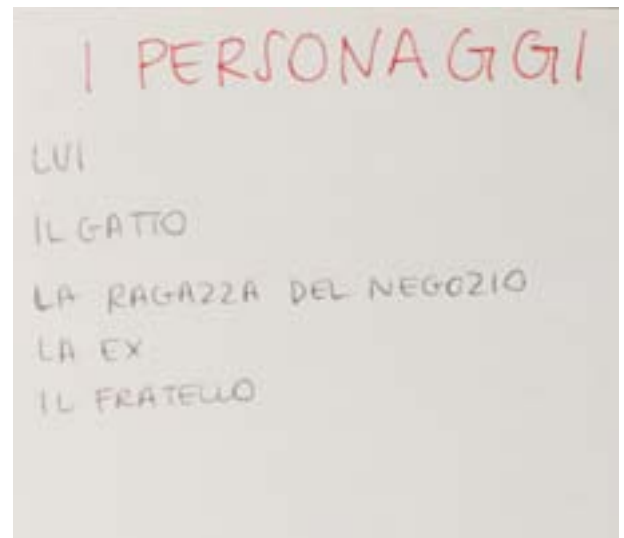 I PERSONAGGI
LUI
IL GATTO
LA RAGAZZA DEL NEGOZIO
LA EX
IL FRATELLO